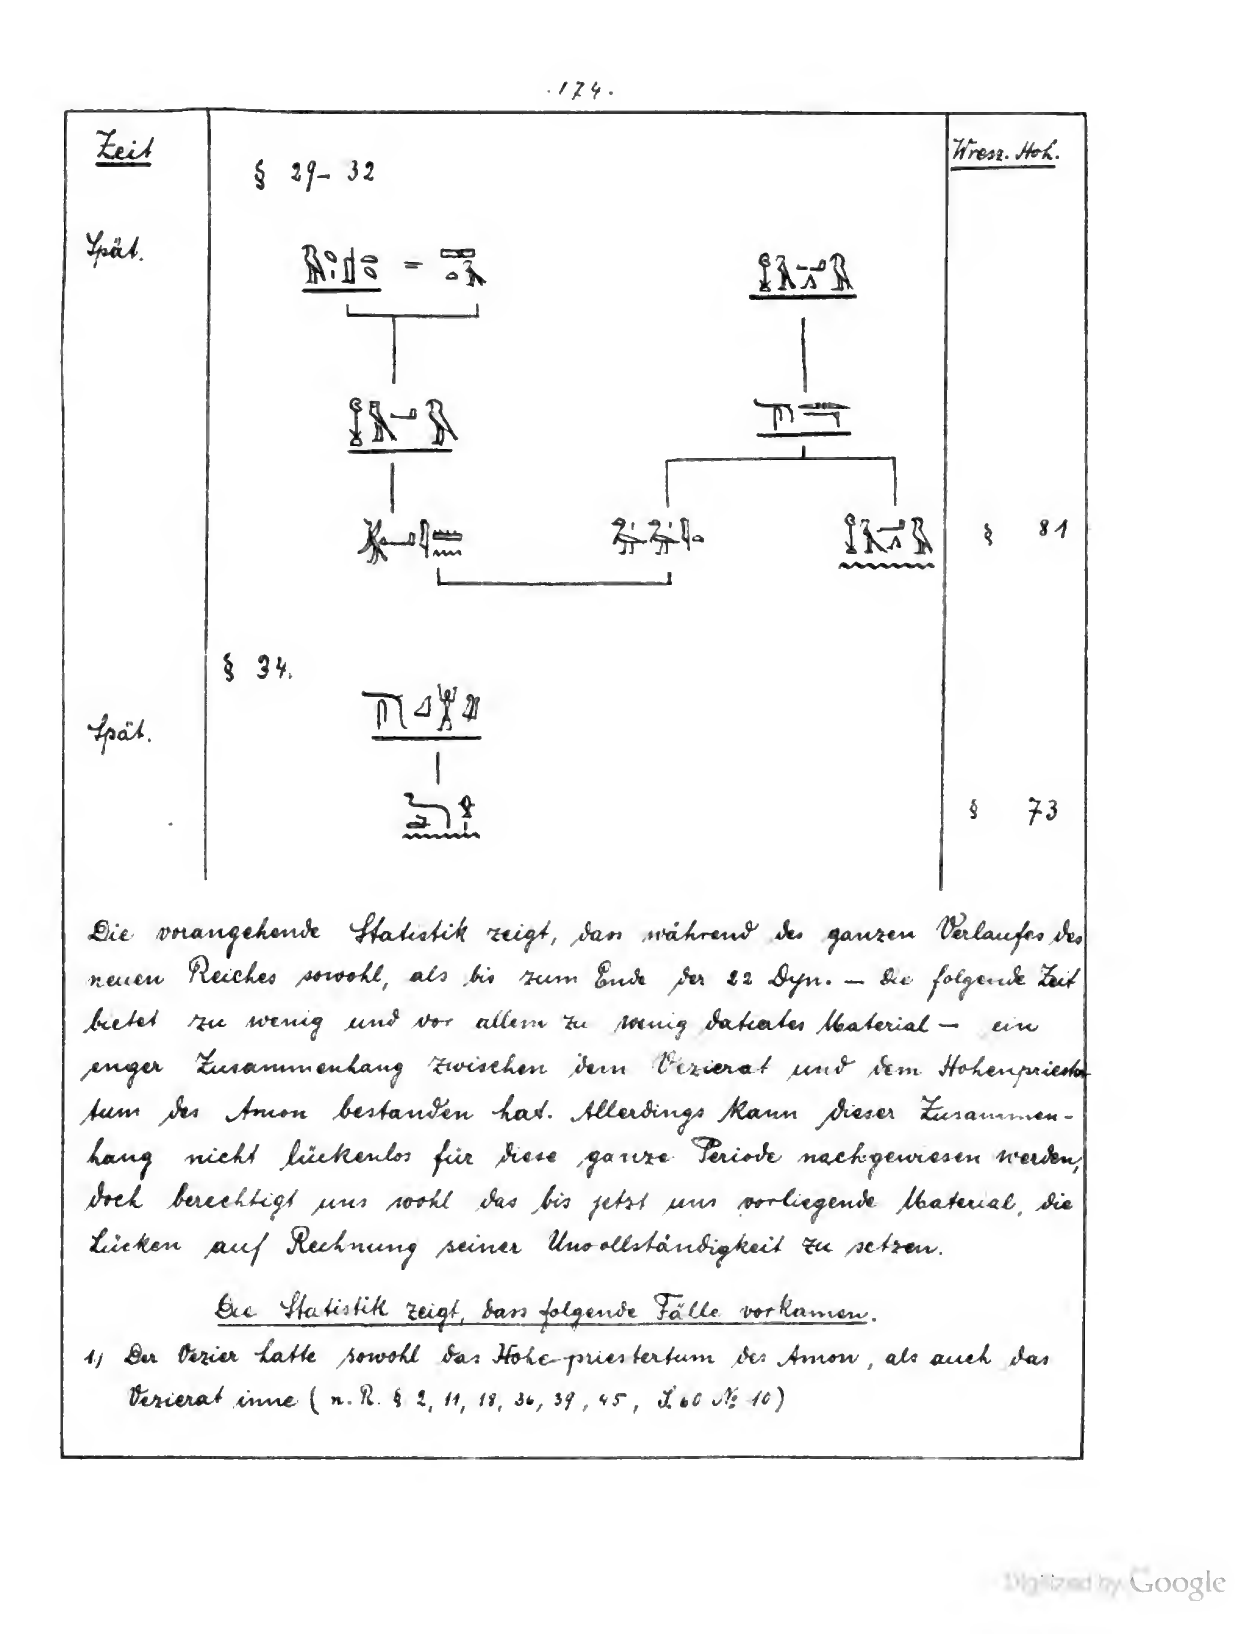 . 174 .
Zeit
Wresz. Hoh.
§ 29 – 32
Spät.
=
§ 81
§ 34.
Spät.
§ 73
Die vorangehende Statistik zeigt, dass während des ganzen Verlaufes des
neuen Reiches sowohl, als bis zum Ende der 22 Dyn. – die folgende Zeit
bietet zu wenig und vor allem zu wenig datiertes Material – ein
enger Zusammenhang zwischen dem Vezierat und dem Hohenpriester
tum des Amon bestanden hat. Allerdings kann dieser Zusammen-
hang nicht lückenlos für diese ganze Periode nachgewiesen werden,
doch berechtigt uns wohl das bis jetzt uns vorliegende Material, die
Lücken auf Rechnung seiner Unvollständigkeit zu setzen.
Die Statistik zeigt, dass folgende Fälle vorkamen.
1.) Der Vezier hatte sowohl das Hohe-priestertum des Amon, als auch das
Vezierat inne ( n. R. § 2, 11, 18, 36, 39, 45, S. 60 № 10)
Digitized by Google